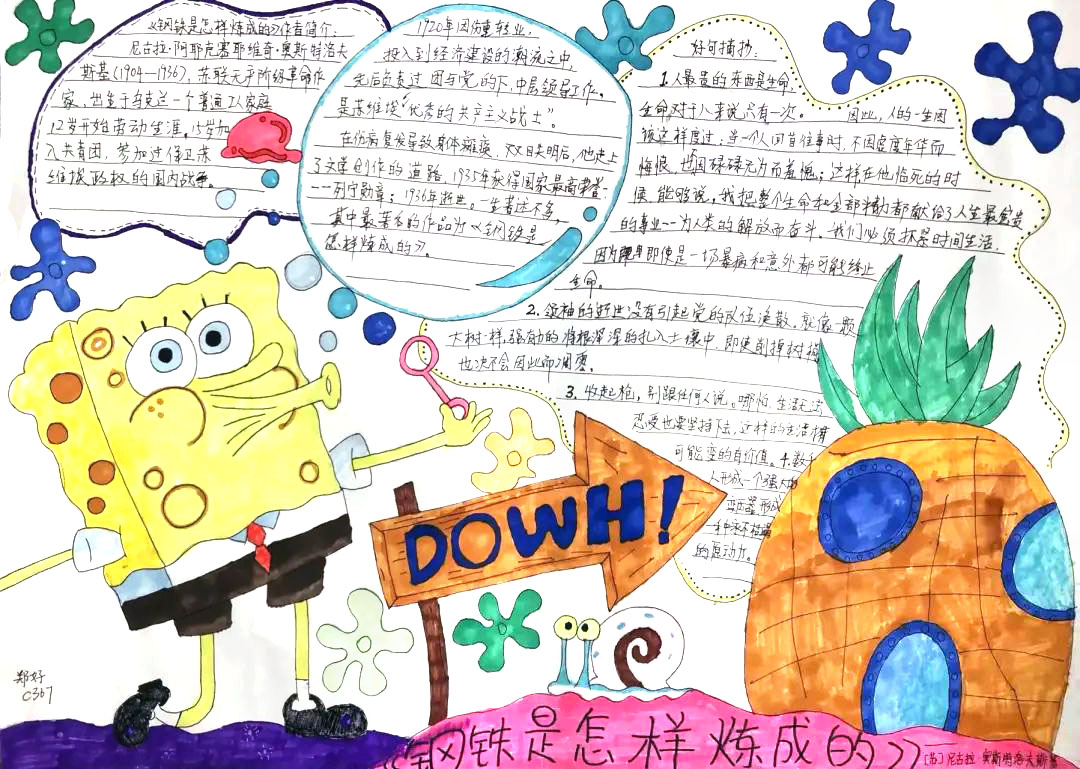 《钢铁是怎样炼成的》作者简介:
尼古拉·阿耶克塞耶维奇·奥斯特洛夫
斯基(1904—1936),苏联无产阶级革命作
家,出生于乌克兰一个普通工人家庭
12岁开始劳动生涯,15岁加
入共青团,参加过保卫苏
维埃政权的国内战争。
1920年因伤重转业,
投入到经济建设的潮流之中,
先后负责过团与党的下,中层领导工作。
是苏维埃“优秀的共产主义战士”。
在伤病复发导致身体瘫痪,双目失明后,他走上
了文学创作的道路,1935年获得国家最高荣誉
——列宁勋章;1936年逝世。一生著述不多,
其中最著名的作品为《钢铁是
怎样炼成的》。
好句摘抄:
1.人最贵的东西是生命,
生命对于人来说只有一次。因此,人的一生因
该这样度过:当一个人回首往事时,不因虚度年华而
悔恨,也因碌碌无为而羞愧;这样在他临死的时
候,能够说,我把整个生命和全部精力都献给了人生最宝贵
的事业——为人类的解放而奋斗。我们必须抓紧时间生活,
因为即使是一场暴病和意外都可能终止
生命。
2.领袖的逝世没有引起党的队伍涣散。就像一颗
大树一样,强有力的将根深深的扎入土壤中,即使削掉树梢
也决不会因此而凋零。
3.收起枪,别跟任何人说。哪怕,生活无法
忍受也要坚持下去,这样的生活才
可能变的有价值。4.数千
人形成一个强大的
变压器形成
一种永不枯竭
的原动力。
DOWH!
郑好
C367
《钢铁是怎样炼成的》
[苏]尼古拉·奥斯特洛夫斯基